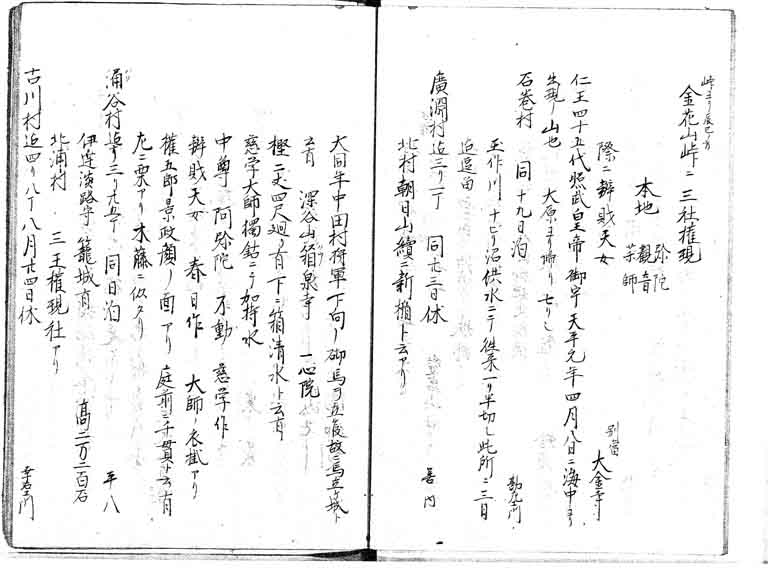 峠ヨリ辰巳ノ方
金花山峠ニ三社権現
本地 弥陀 観音 薬師
際ニ辨財天女
別當 大金寺
仁王四十五代照武皇帝御宇天平元年四月八日ニ海中ヨリ
出現ノ山也 大原ヨリ御リ七リ
石巻村 同十九日泊
玉作川 十七リ沼供水ニテ往来一リ半切レ此所ニ三日
逗留
廣淵村迄三リ一丁 同廿三日休 善内
北村朝日山續ニ新橋ト云アリ
大同年中田村将軍下向ノ御馬ヲ立後故ニ馬立城ト
云有 深谷山箱泉寺 一心院
樫二丈四尺廻リ有下ニ箱清水ト云有
慈学大師獨鈷ニテ加持水
中尊 阿弥陀 不動 慈学作
辨財天女 春日作 大師ノ衣掛アリ
権五郎景政顔ノ面アリ 庭前ニ千貫ト云有
左ニ栗アリ木藤ニ似タリ
涌谷村迄三リ 同日泊 平八
伊達淡路守籠城有 高二万二百石
北浦村 三王権現社アリ
古川村迄四リ八丁八月廿四日休